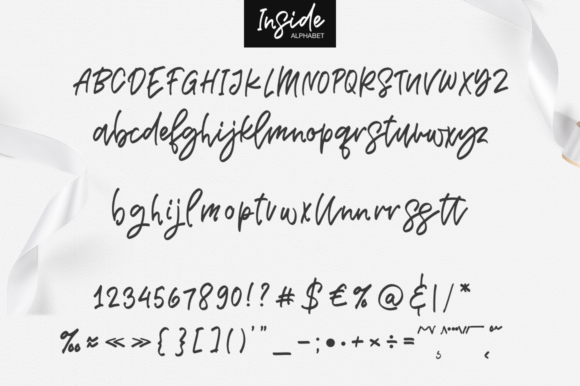 Inside
ALPHABET
ABCDEFGHIJKLMNOPQRSTUVWXYZ
abcdefghijklmnopqrstuvwxyz
bghijlmoptvwx
1234567890!?#$€%@&|/*
‰≈«»{}[]()'"_-;•·+×÷=